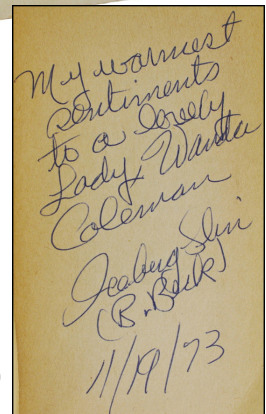 My warmest
sentiments
to a lovely
Lady, Wanda
Coleman
Iceberg Slim
(B. Beck)
11/19/73